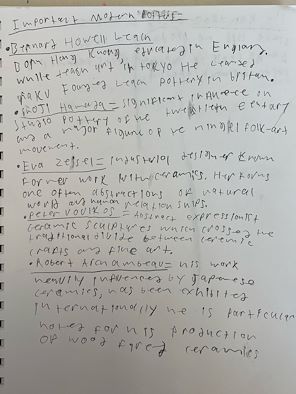 Important Modern Potters =
• Bernard Howell Leach
Born Hong Kong educated in England.
While teaching art in Tokyo He learned
raku Founded Leach Pottery in
• Shoji Hamada = significant influence on
studio pottery of the twentieth century
and a major figure of the mingei folk-art
movement.
• Eva Zeisel = industrial designer known
For her work with ceramics. Her forms
are often abstractions of natural
world and human relationships.
• Peter Voulkos = Abstract expressionist
ceramic sculptures which crossed the
traditional divide between ceramic
crafts and fine art.
• Robert Archambeau = his work
heavily influenced by Japanese
ceramics, has been exhibited
internationally he is particular
noted for his production
of wood fired ceramics